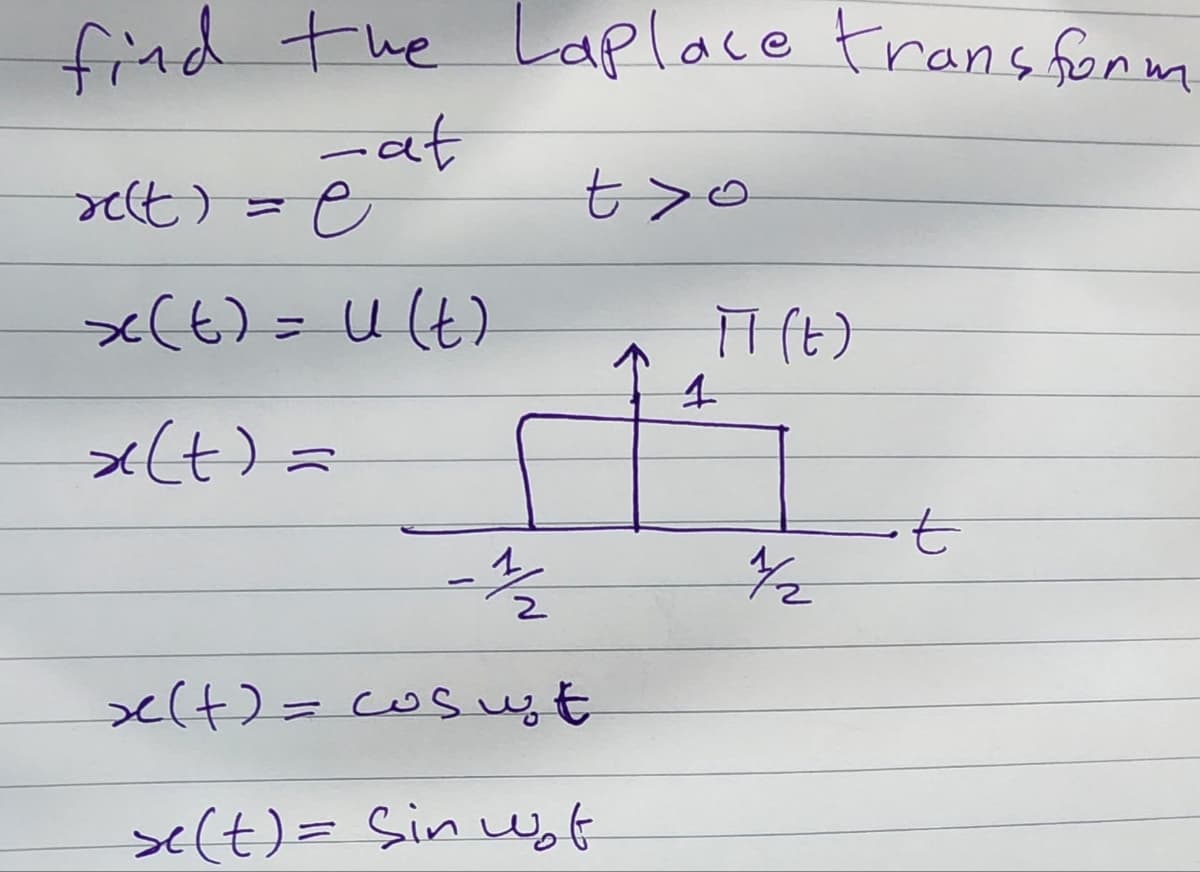 find the Laplace transform
x(t) = e^{-at} t>0
x(t) = u(t)
Π(t)
1
x(t) =
t
-1/2 1/2
x(t) = cos ω₀t
x(t) = sin ω₀t